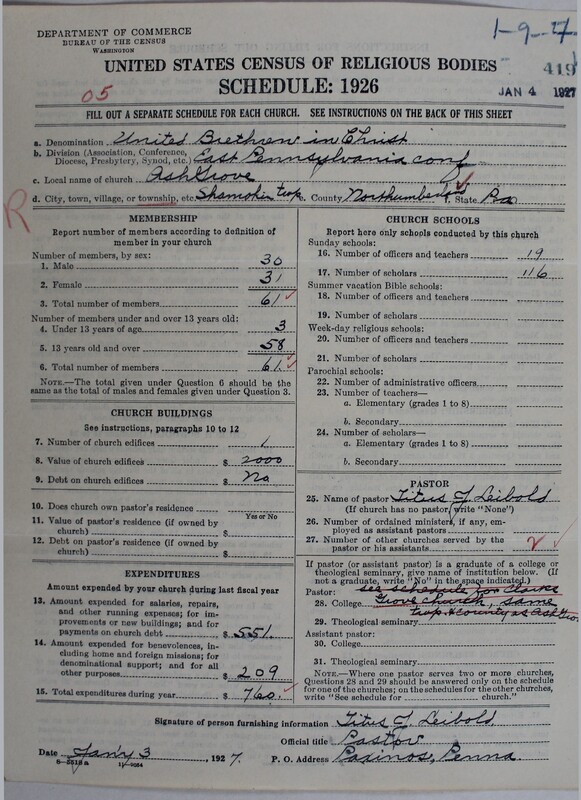 DEPARTMENT OF COMMERCE
BUREAU OF THE CENSUS
WASHINGTON
1-9-
419
UNITED STATES CENSUS OF RELIGIOUS BODIES
05
SCHEDULE: 1926
JAN 4 1927
FILL OUT A SEPARATE SCHEDULE FOR EACH CHURCH. SEE INSTRUCTIONS ON THE BACK OF THIS SHEET
a. Denomination United Brethren in Christ
b. Division (Association, Conference,
Diocese, Presbytery, Synod, etc.) East Pennsylvania conf
c. Local name of church Ash Grove
R
d. City, town, village, or township, etc. Shamokin twp. County Northumberland State Pa
MEMBERSHIP
Report number of members according to definition of
member in your church
Number of members, by sex:
1. Male 30
2. Female 31
3. Total number of members 61
Number of members under and over 13 years old:
4. Under 13 years of age 3
5. 13 years old and over 58
6. Total number of members 61
NOTE.—The total given under Question 6 should be the
same as the total of males and females given under Question 3.
CHURCH BUILDINGS
See instructions, paragraphs 10 to 12
7. Number of church edifices 1
8. Value of church edifices $ 2000
9. Debt on church edifices $ No
10. Does church own pastor's residence?
Yes or No
11. Value of pastor's residence (if owned by
church) $
12. Debt on pastor's residence (if owned by
church) $
EXPENDITURES
Amount expended by your church during last fiscal year
13. Amount expended for salaries, repairs,
and other running expenses; for im-
provements or new buildings; and for
payments on church debt $ 551.
14. Amount expended for benevolences,
including home and foreign missions; for
denominational support; and for all
other purposes $ 209
15. Total expenditures during year $ 760.
CHURCH SCHOOLS
Report here only schools conducted by this church
Sunday schools:
16. Number of officers and teachers 19
17. Number of scholars 116
Summer vacation Bible schools:
18. Number of officers and teachers
19. Number of scholars
Week-day religious schools:
20. Number of officers and teachers
21. Number of scholars
Parochial schools:
22. Number of administrative officers
23. Number of teachers—
a. Elementary (grades 1 to 8)
b. Secondary
24. Number of scholars—
a. Elementary (grades 1 to 8)
b. Secondary
PASTOR
25. Name of pastor Titus J. Leibold
(If church has no pastor, write "None")
26. Number of ordained ministers, if any, em-
ployed as assistant pastors
27. Number of other churches served by the
pastor or his assistants 2
If pastor (or assistant pastor) is a graduate of a college or
theological seminary, give name of institution below. (If
not a graduate, write "No" in the space indicated.)
Pastor: see schedule for Clarks
28. College Grove church, same
twp. & county as Ash Grove
29. Theological seminary
Assistant pastor:
30. College
31. Theological seminary
NOTE.—Where one pastor serves two or more churches,
Questions 28 and 29 should be answered only on the schedule
for one of the churches; on the schedules for the other churches,
write "See schedule for church."
Signature of person furnishing information Titus J. Leibold
Official title Pastor
Date Jan'y 3, 1927. P. O. Address Paxinos, Penna.
8-5518 a